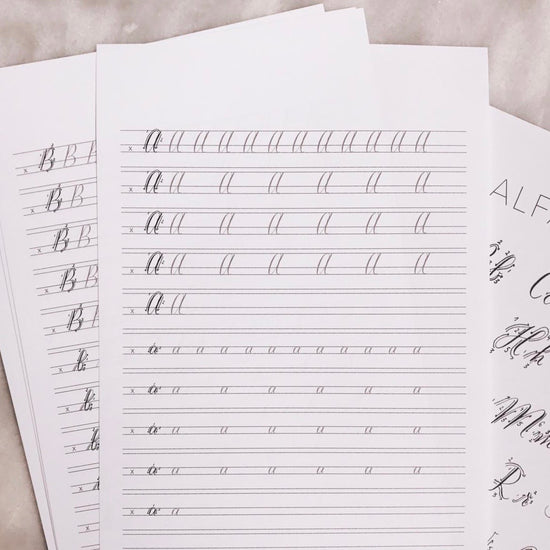 x B B B
x B B
x B B
x B B
x B B
x b
x b
x b
x b
x
x A A A A A A A A A A A A
x A A A A A A A
x A A A A A A A
x A A A A A A A
x A A
x a a a a a a a a a a a a
x a a a a a a a
x a a a a a a a
x a a a a a a a
x a a
ALF
H h
M m
R r